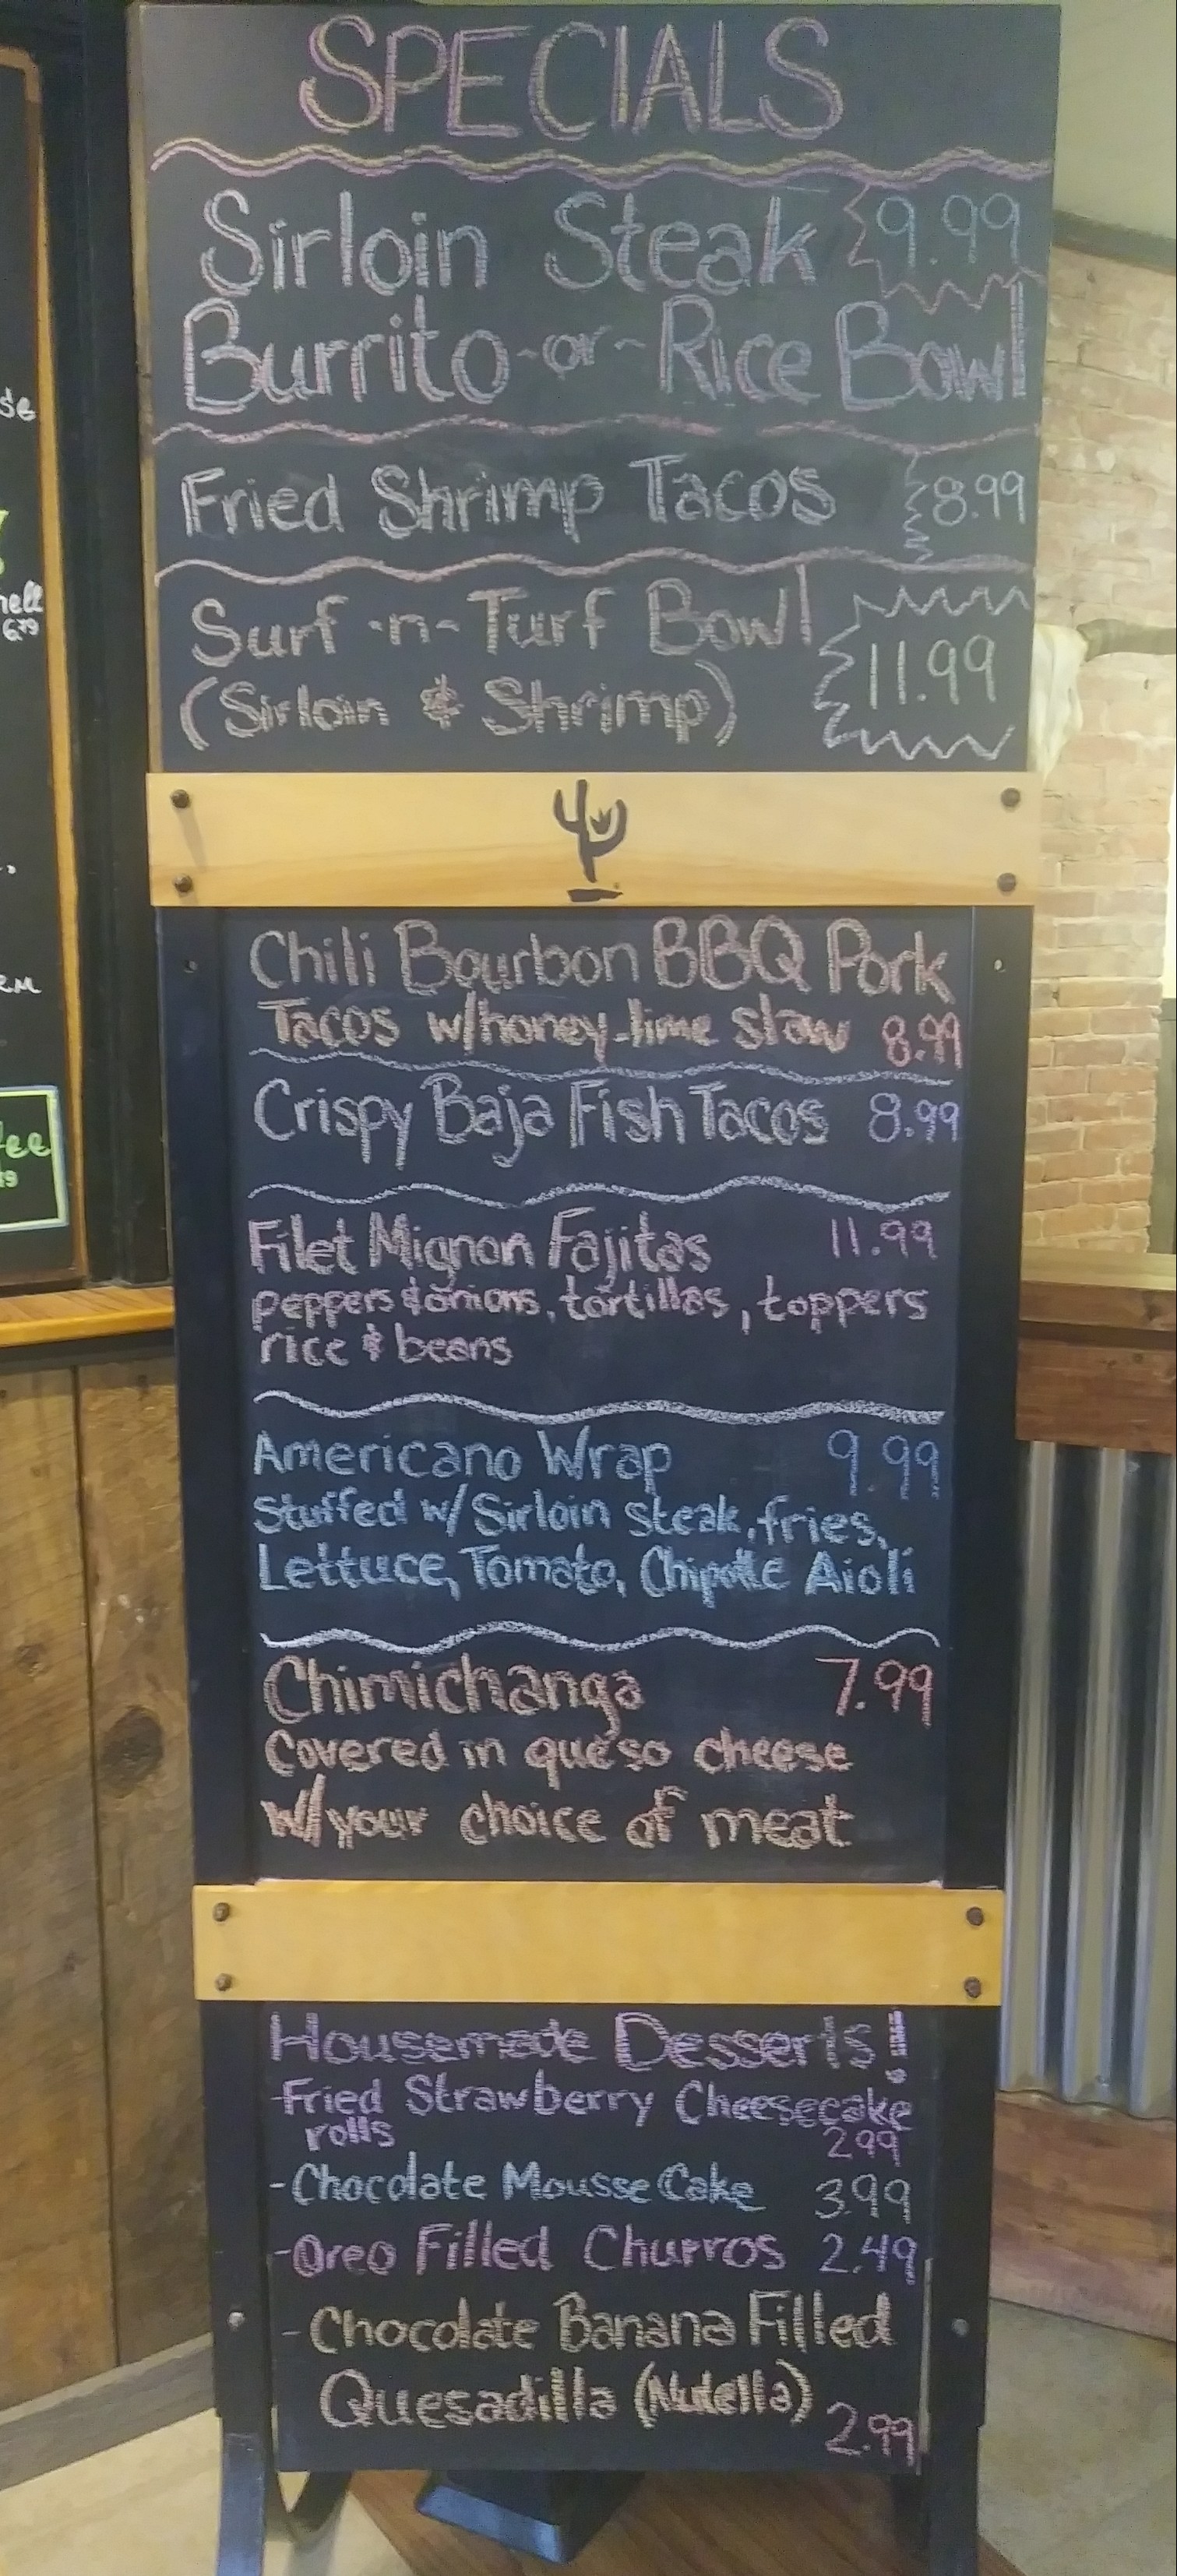 SPECIALS
Sirloin Steak 9.99
Burrito -or- Rice Bowl
Fried Shrimp Tacos 8.99
Surf -n- Turf Bowl
(Sirloin & Shrimp) 11.99
Chili Bourbon BBQ Pork
Tacos w/honey-lime slaw 8.99
Crispy Baja Fish Tacos 8.99
Filet Mignon Fajitas 11.99
peppers & onions, tortillas, toppers
rice & beans
Americano Wrap 9.99
Stuffed w/ Sirloin steak, fries,
Lettuce, Tomato, Chipotle Aioli
Chimichanga 7.99
Covered in queso cheese
w/your choice of meat
Housemade Desserts!
-Fried Strawberry Cheesecake
rolls 2.99
-Chocolate Mousse Cake 3.99
-Oreo Filled Churros 2.49
- Chocolate Banana Filled
Quesadilla (Nutella)
2.99